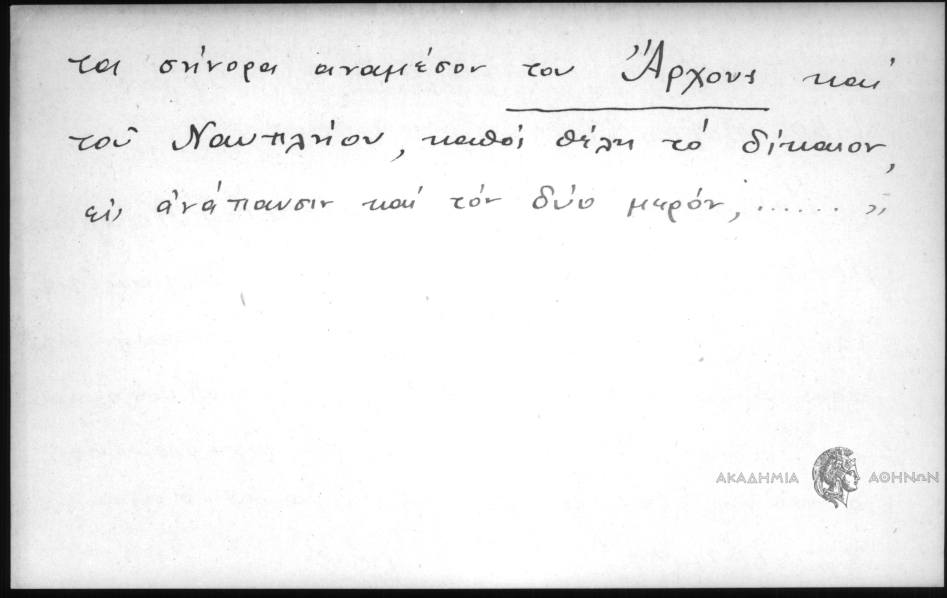 τα σήνορα αναμέσον του Ἄρχους καί
τοῦ Ναυπλήου, καθός θέλη τό δίκαιον,
εἰς ἀνάπαυσιν καί τόν δύο μερόν, ...... »
ΑΚΑΔΗΜΙΑ ΑΘΗΝΩΝ